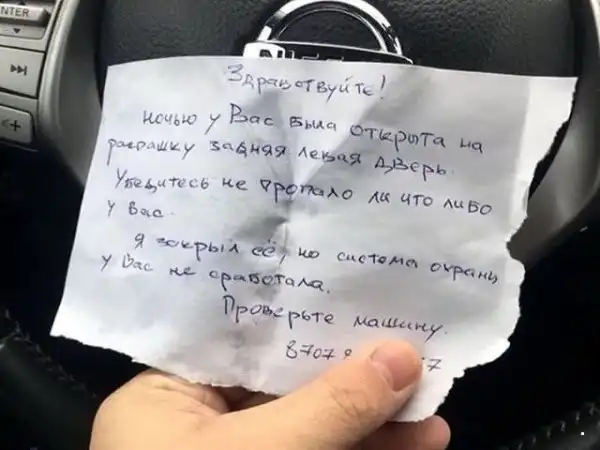 ENTER
Здравствуйте!
ночью у Вас была открыта на
распашку задняя левая дверь.
Убедитесь не пропало ли что либо
у вас.
Я закрыл её, но система охраны
у Вас не сработала.
Проверьте машину.
8707 7